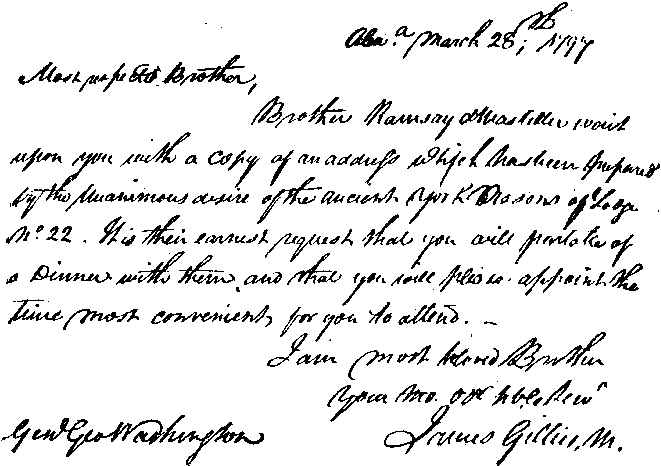 Alexa. March 28th, 1797
Most respectd. Brother,
Brothers Ramsay & Marsteller wait
upon you with a copy of an address which has been prepared
by the Unanimous desire of the ancient York Masons of Lodge
No. 22. It is their earnest request that you will partake of
a Dinner with them, and that you will please appoint the
time most convenient for you to attend. —
I am most beloved Brother
Your Mo. Obt. hble. Servt
Genl. Geo Washington
James Gillies, M.